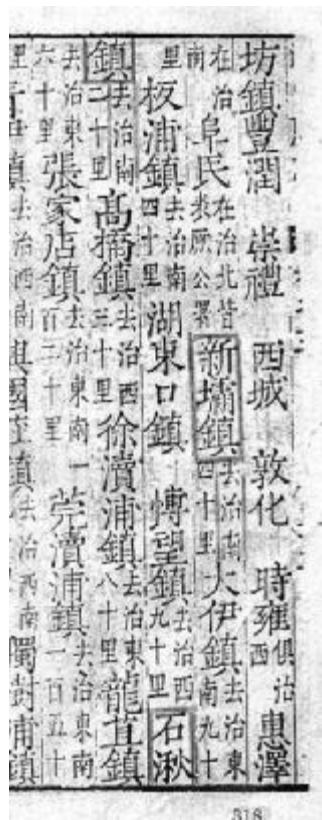 坊鎮豐潤 崇禮 西城 敦化 時雍俱治西 惠澤
在治南 阜民在治北皆公署 新壩鎮去治南四十里 大伊鎮去治東南九十
里 板浦鎮去治南四十里 湖東口鎮 博望鎮去治西九十里 石湫
鎮去治南二十里 高橋鎮去治西三十里 徐瀆浦鎮去治東八十里 龍苴鎮
去治東六十里 張家店鎮去治東南一百二十里 莞瀆浦鎮去治東南一百五十
里 伊鎮去治西南 國莊鎮去治西南 獨樹浦鎮
318